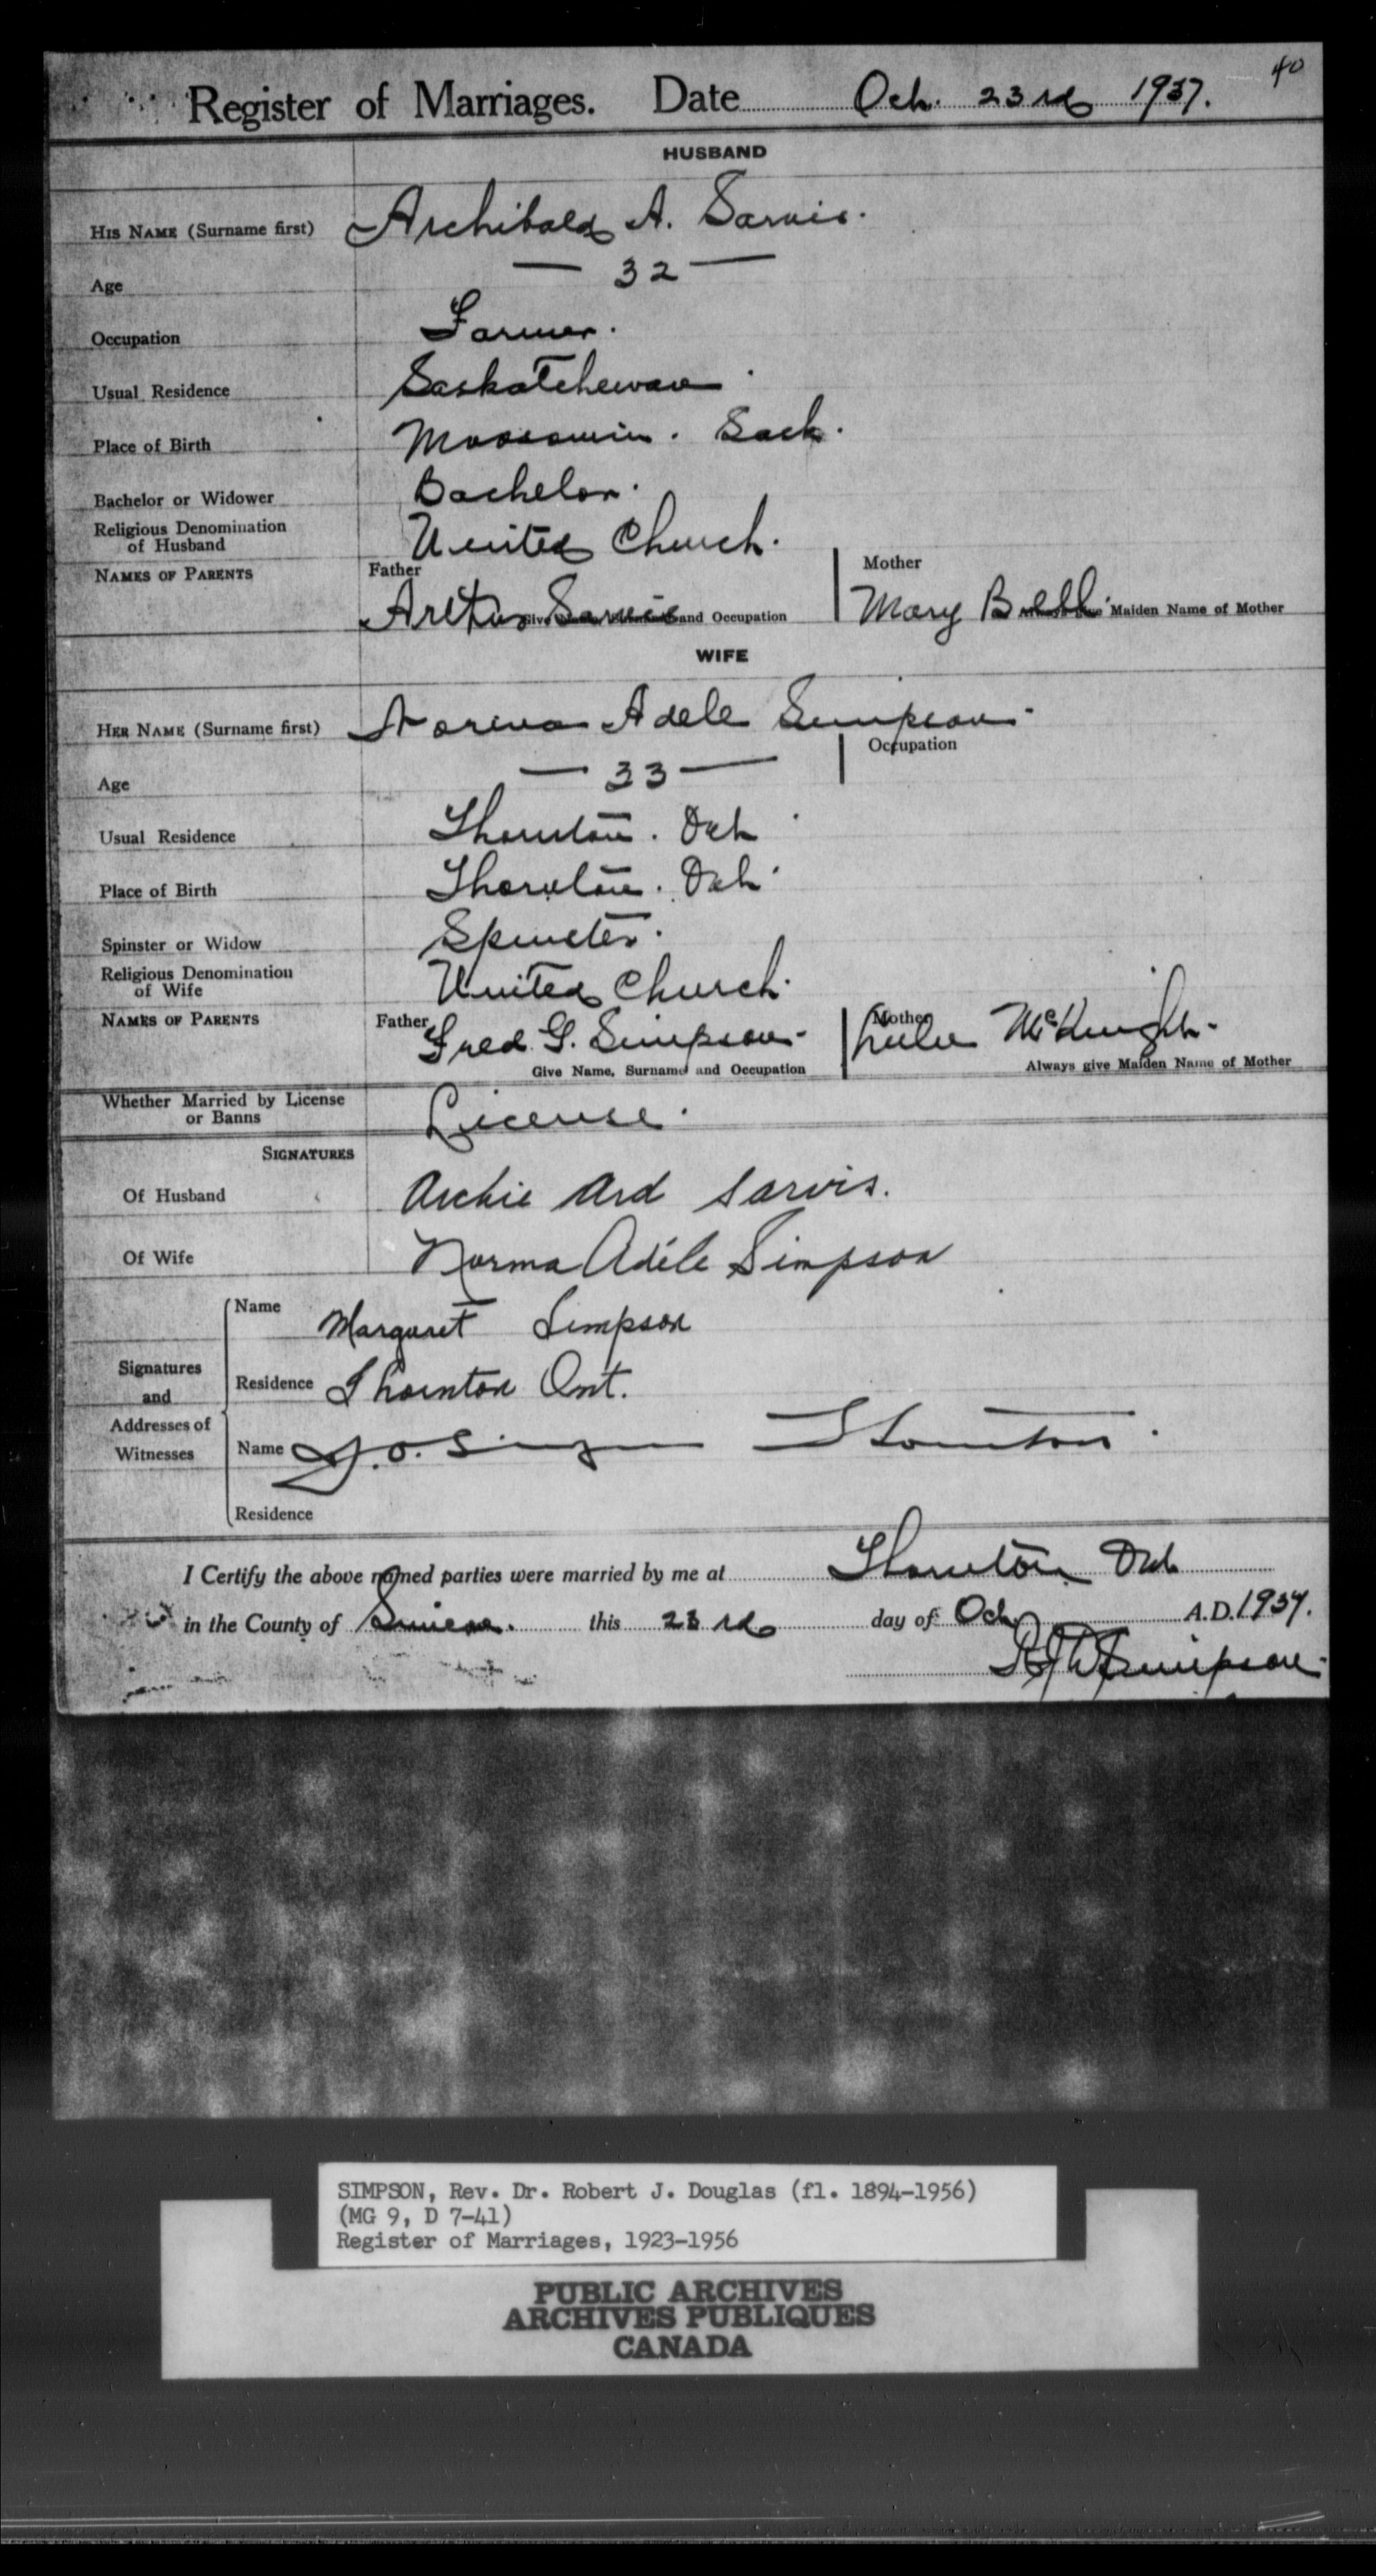 40
Register of Marriages. Date Oct. 23rd 1937.
HUSBAND
HIS NAME (Surname first) Archibald A. Sarvis.
Age — 32 —
Occupation Farmer.
Usual Residence Saskatchewan.
Place of Birth Moosomin. Sask.
Bachelor or Widower Bachelor.
Religious Denomination
of Husband United Church.
NAMES OF PARENTS Father Mother
Sarvis and Occupation Mary Bell. Maiden Name of Mother
WIFE
HER NAME (Surname first) Norma Adele Simpson.
Occupation
Age — 33 —
Usual Residence Thornton. Ont.
Place of Birth Thornton. Ont.
Spinster or Widow Spinster.
Religious Denomination
of Wife United Church.
NAMES OF PARENTS Father Fred G. Simpson. Mother McKnight.
Give Name, Surname and Occupation Always give Maiden Name of Mother
Whether Married by License
or Banns License.
SIGNATURES
Of Husband Archie Ard Sarvis.
Of Wife Norma Adéle Simpson
Name Margaret Simpson
Signatures
and
Addresses of
Witnesses
Residence Thornton Ont.
Name Thornton.
Residence
I Certify the above named parties were married by me at Thornton Ont
in the County of Simcoe. this 23rd day of Oct. A.D. 1937.
Simpson.
SIMPSON, Rev. Dr. Robert J. Douglas (fl. 1894-1956)
(MG 9, D 7-41)
Register of Marriages, 1923-1956
PUBLIC ARCHIVES
ARCHIVES PUBLIQUES
CANADA